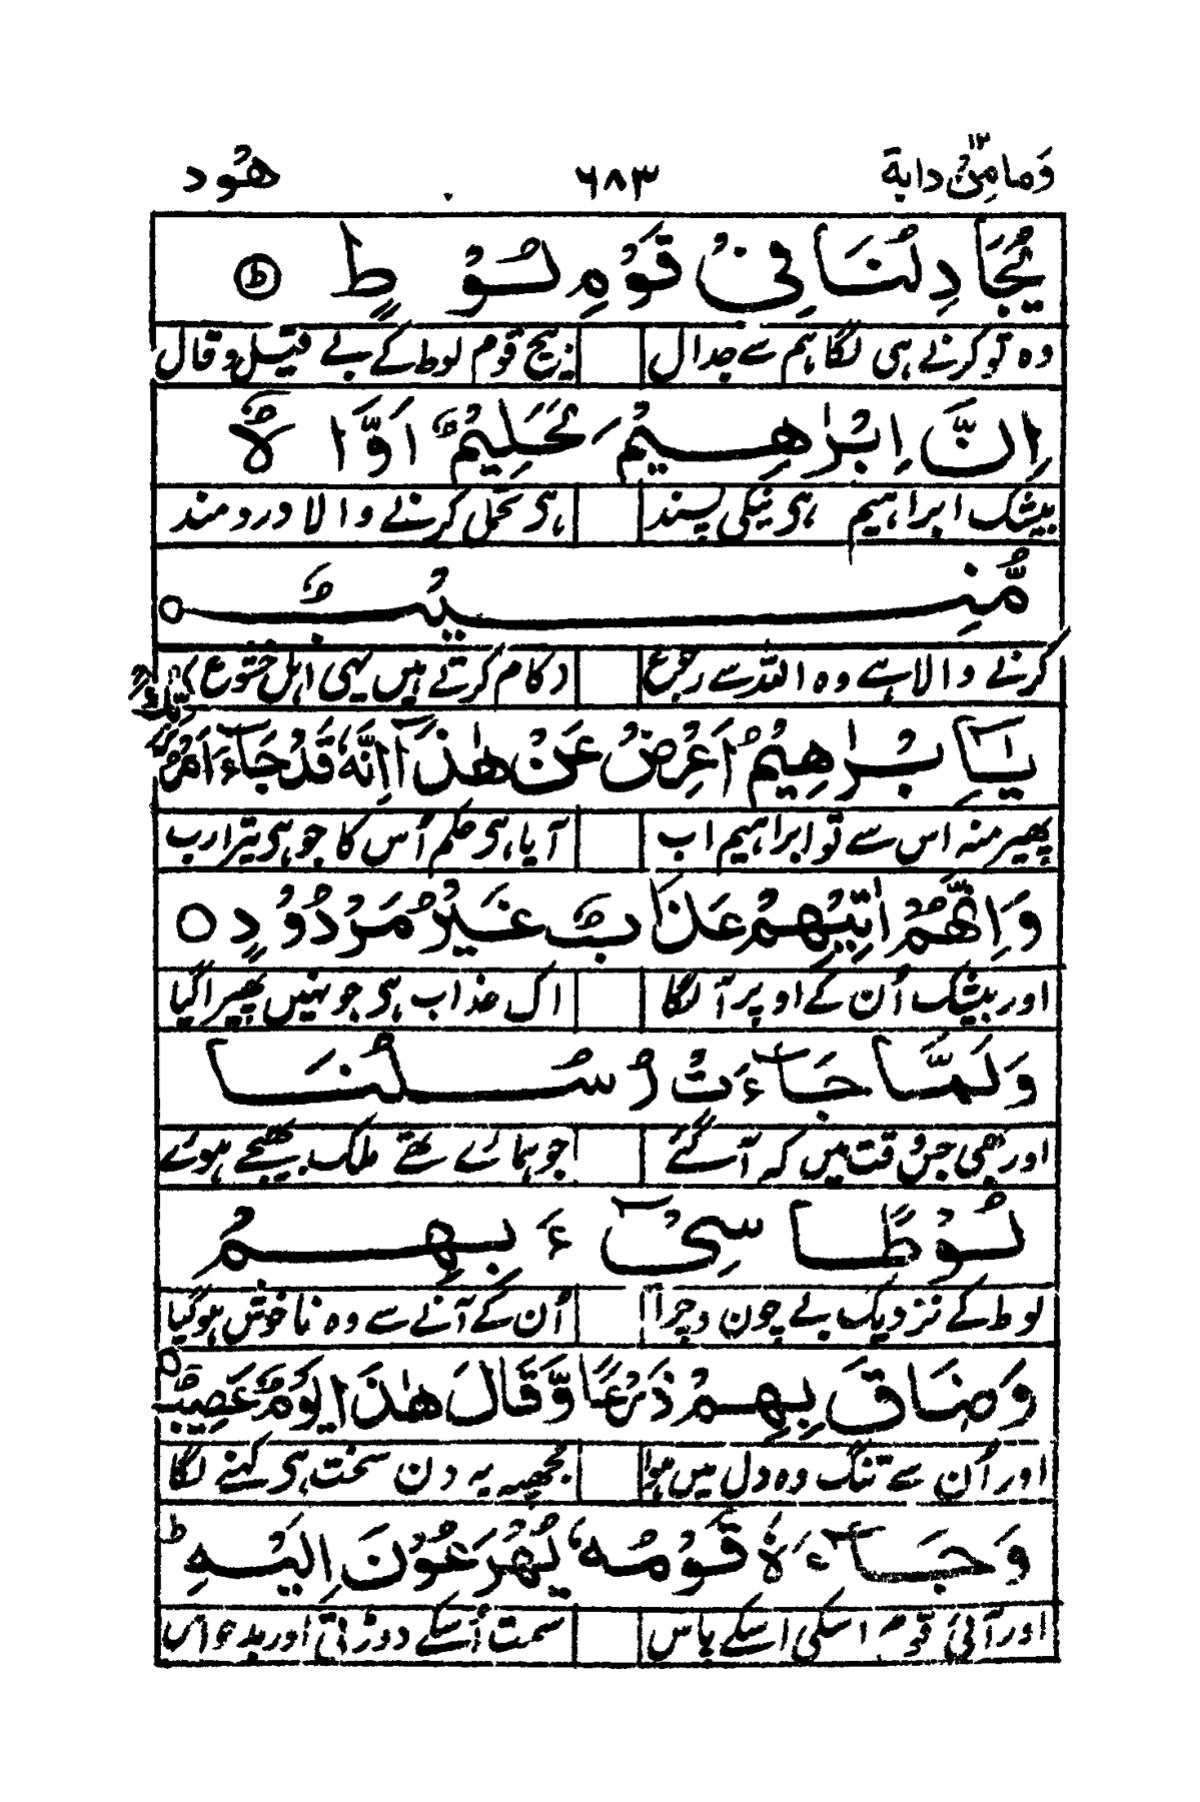 وَمَا مِنْ دابة ١٢ ٦٨٣ هُود
يُجَادِلُنَا فِىْ قَوْمِ لُوْطٍ ط
وہ تو کرنے ہی لگا ہم سے جدال بیچ قوم لوط کے بے قیل و قال
اِنَّ اِبْرٰهِيْمَ لَحَلِيْمٌ اَوَّاهٌ
بیشک ابراہیم ہی نیکی پسند ہی تحمل کرنے والا دردمند
مُّنِيْبٌ ○
کرنے والا ہے وہ اللہ سے رجوع کام کرتے ہیں یہی اہل خشوع
يٰۤاِبْرٰهِيْمُ اَعْرِضْ عَنْ هٰذَآ اِنَّهٗ قَدْ جَآءَ اَمْرُ رَبِّكَ
پھیر منہ اس سے تو ابراہیم اب آیا ہی حکم اُس کا جو ہی تیرا رب
وَاِنَّهُمْ اٰتِيْهِمْ عَذَابٌ غَيْرُ مَرْدُوْدٍ ○
اور بیشک اُن کے اوپر آ لگا اک عذاب ہی جو نہیں پھیرا گیا
وَلَمَّا جَآءَتْ رُسُلُنَا
اور بھی جس وقت میں کہ آ گئے جو ہمارے تھے ملک بھیجے ہوئے
لُوْطًا سِىْٓءَ بِهِمْ
لوط کے نزدیک بے چون و چرا اُن کے آنے سے وہ ناخوش ہو گیا
وَضَاقَ بِهِمْ ذَرْعًا وَّقَالَ هٰذَا يَوْمٌ عَصِيْبٌ ○
اور اُن سے تنگ وہ دل میں ہوا مجھپہ یہ دن سخت ہی کہنے لگا
وَجَآءَهٗ قَوْمُهٗ يُهْرَعُوْنَ اِلَيْهِ ط
اور آئی قوم اسکی اسکے پاس سمت اُسکے دوڑتی اور بدحواس